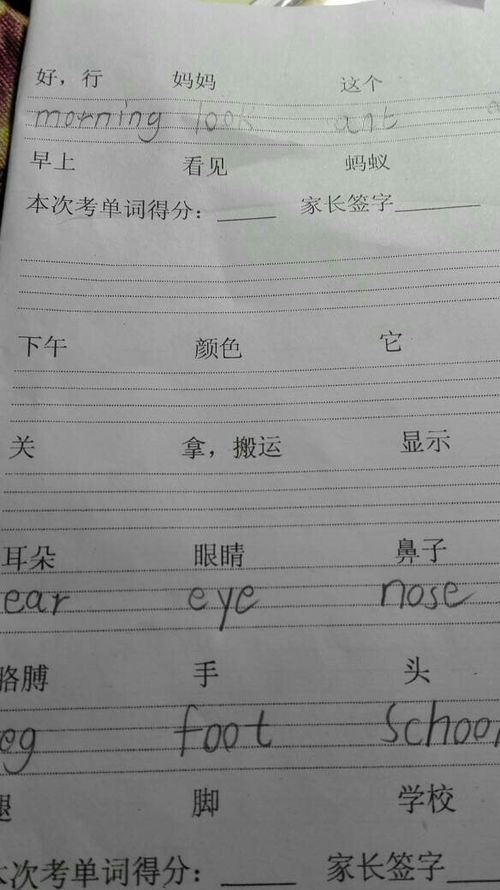 好，行 妈妈 这个
morning look ant
早上 看见 蚂蚁
本次考单词得分：_____ 家长签字_______
下午 颜色 它
关 拿，搬运 显示
耳朵 眼睛 鼻子
ear eye nose
胳膊 手 头
leg foot school
腿 脚 学校
本次考单词得分：_____ 家长签字_______